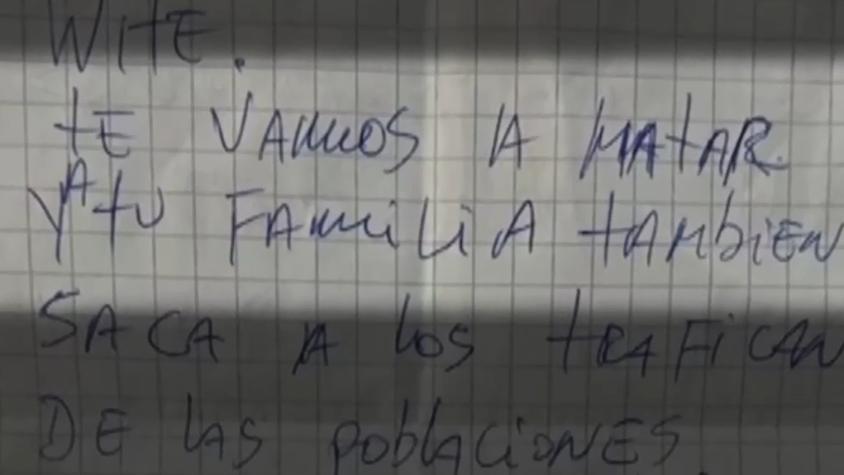 WITE.
TE VAMOS A MATAR
Y A TU FAMILIA TAMBIEN
SACA A LOS TRAFICAN
DE LAS POBLACIONES.